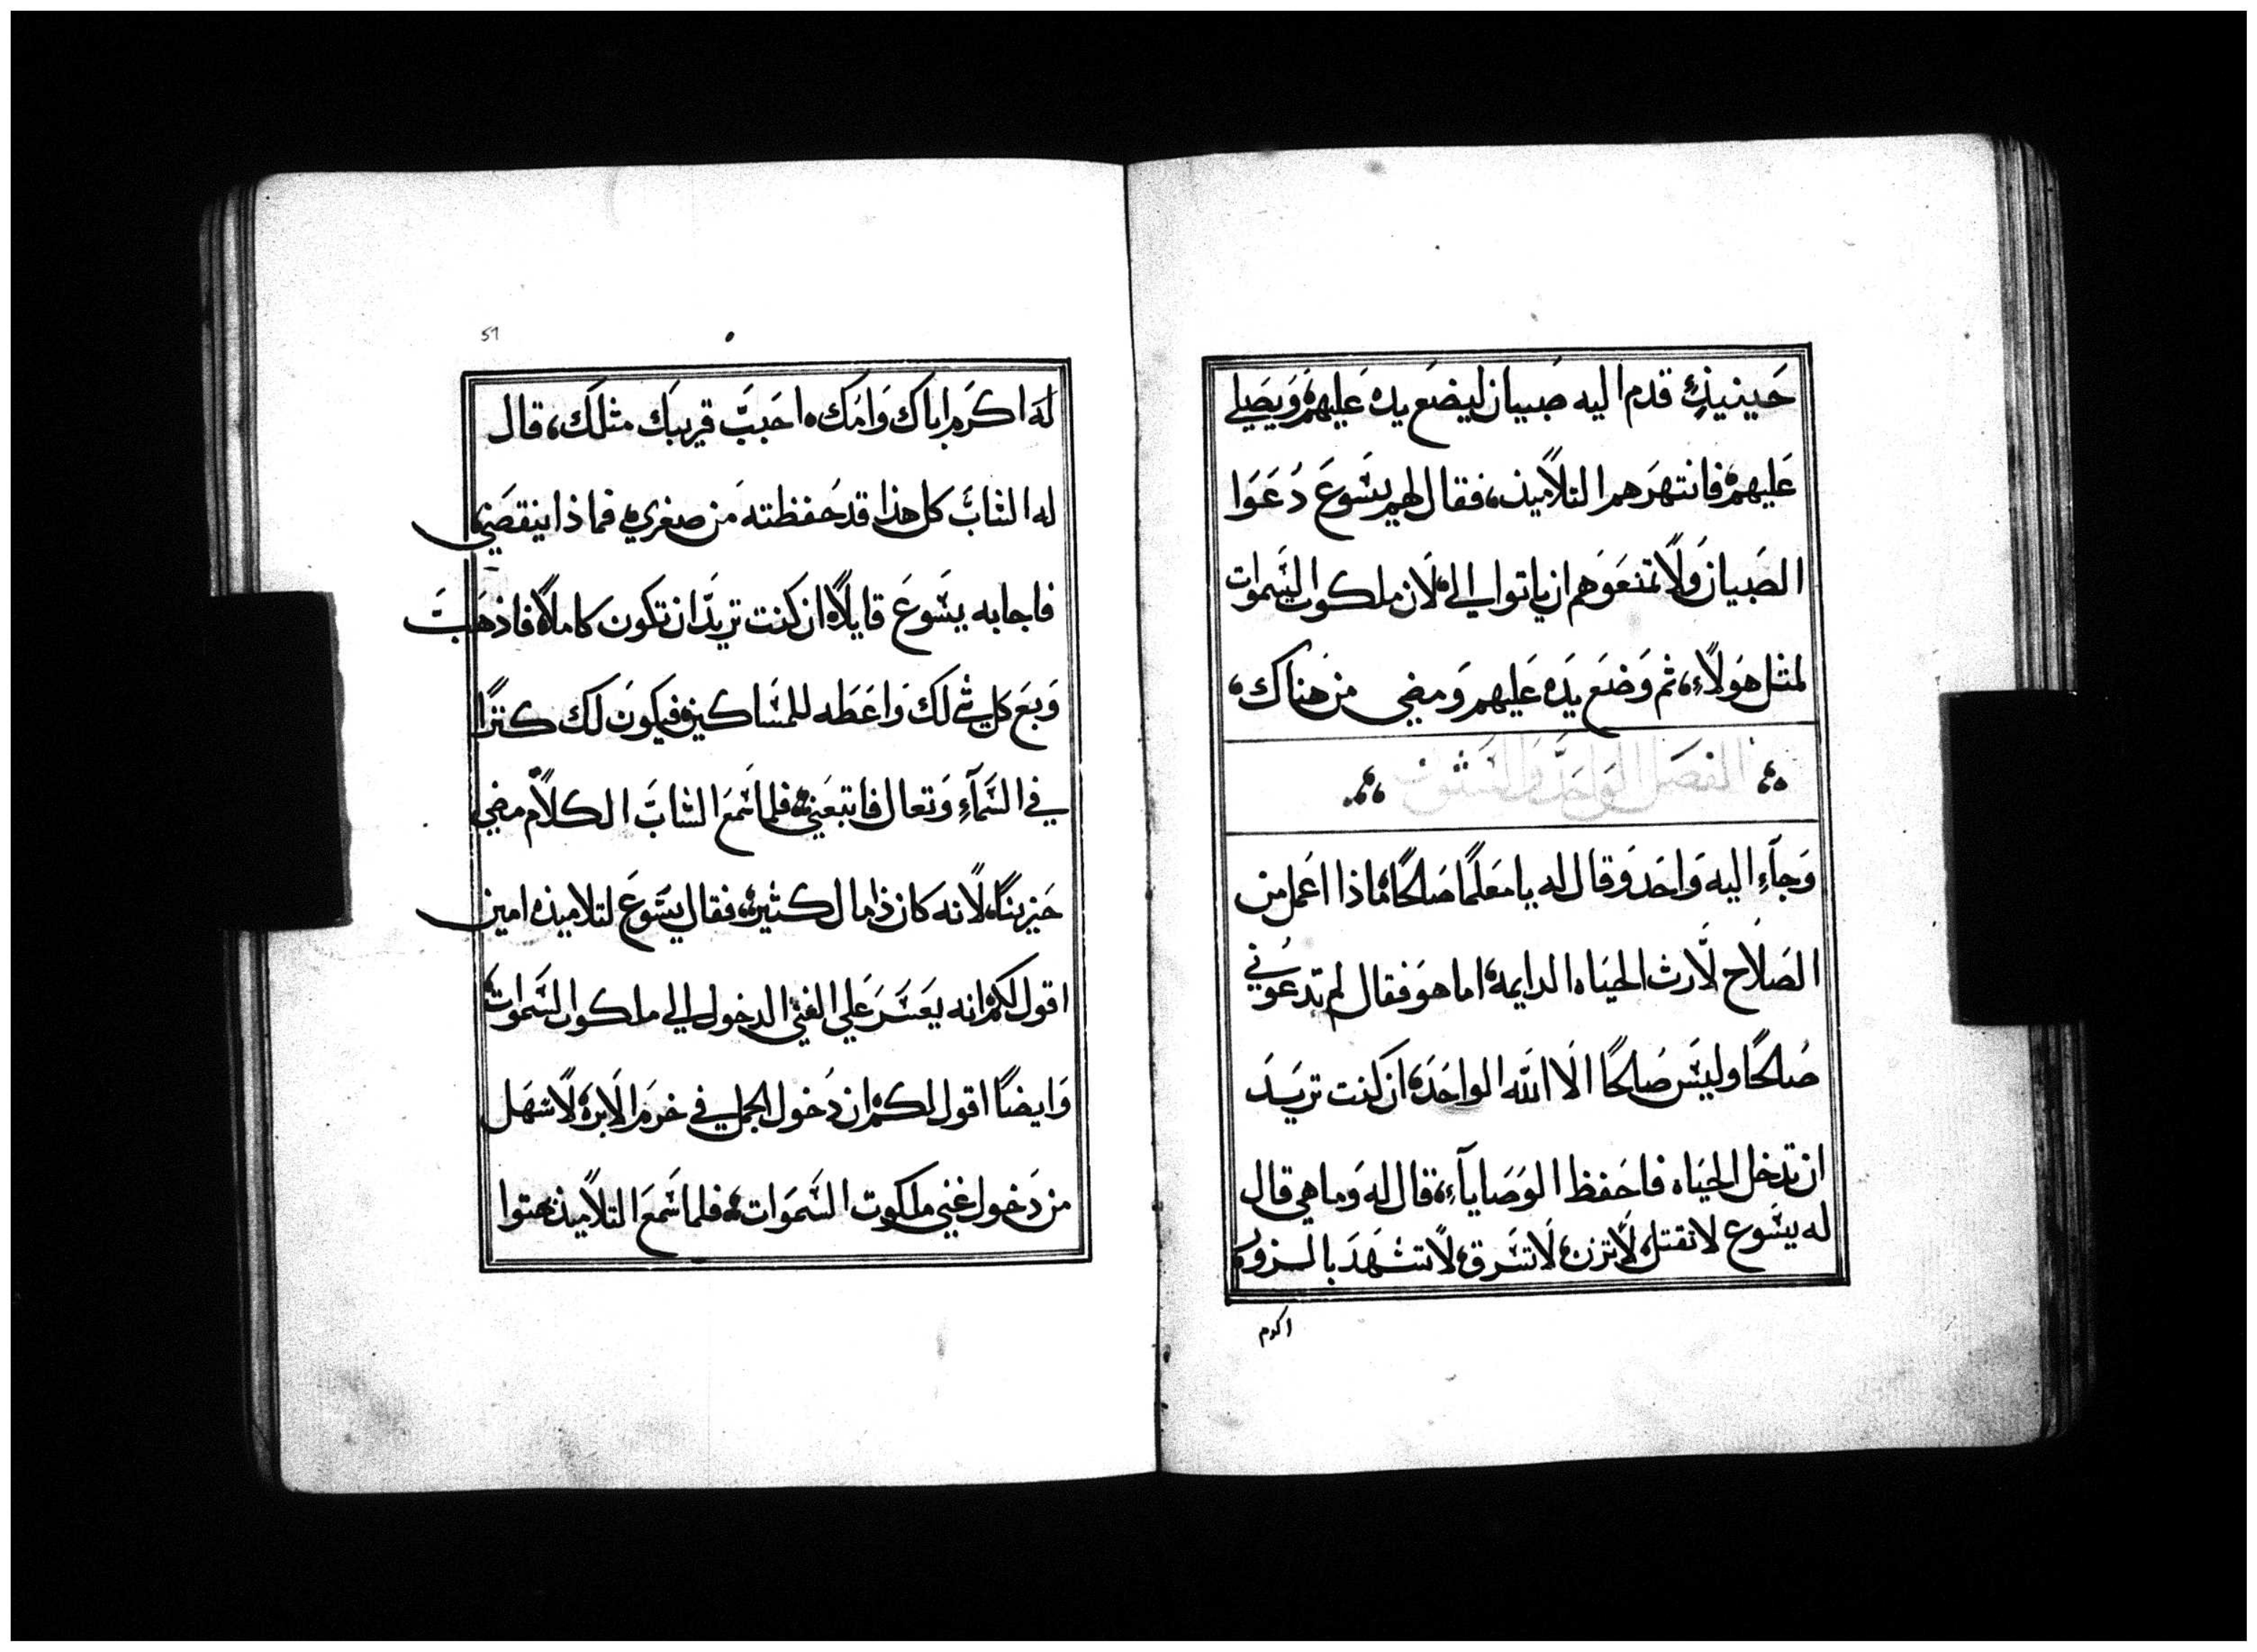 حَينيذٍ قدم اليه صَبيان ليضَع يده عَليهم وَيصَلي
عَليهم فانتهرَهم التلاميذ، فقال لهم يسُوعَ دَعَوا
الصَبيان وَلا تمنعَوهم ان ياتوا الي، لان ملكوت السَموات
لمثل هَولاء، ثم وَضعَ يدَه عَليهم وَمضي من هناك،
الفصَل الوَاحَد وَالسَتون
وَجآءِ اليه وَاحَد وَقال له يا معَلمًا صَلحًا، ماذا اعَمل من
الصَلاح لارث الحيَاه الدايمه، اما هوَ فقال لم تدعَوني
صَلحًا وليسَ صَلحًا الا الله الواحَد، ان كنت تريَد
ان تدخل الحيَاه فاحَفظ الوَصَايآء، قال له وَما هي قال
له يسَوع لا تقتل، لا تزن، لا تسَرق، لا تشهَدَ بالزور،
اكرم
51
لهَ اكرَم اباك وَامَك، احَببَ قريبَك مثلَك، قال
له الشابَ كل هذا قد حَفظته مَن صغري، فما ذا ينقصَني
فاجابه يسَوعَ قايلًا، ان كنت تريدَ ان تكون كاملًا، فاذهَبَ
وَبعَ كل شي لكَ وَاعَطَه للمسَاكين، فيكونَ لك كنزًا
في السَمآءِ وَتعال فاتبعَني، فلما سَمعَ الشابَ الكلام مضي
حَزينًا، لانه كان ذا مال كثير، فقال يسَوعَ لتلاميذه امين
اقول لكم، انه يعَسَرَ عَلي الغني الدخول الي ملكوت السَموات،
وَايضًا اقول لكم، ان دَخول الجمل في خرمَ الابرَه، لاسَهَل
من دَخول غني ملكوت السَمَوات، فلما سَمعَ التلاميذ بهتوا